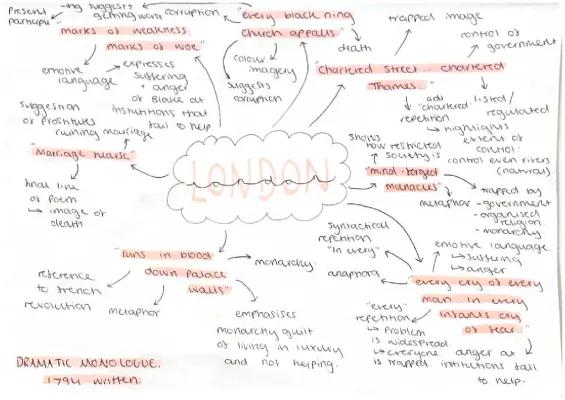 Present participle
-ing suggests getting worse
corruption
"every black'ning
church appalls"
death
colour
imagery
suggests
corruption
marks of weakness
marks of woe"
emotive
language
expresses
suffering
+ anger
of Blake at
institutions that
fail to help
trapped image
control of
government
"Chartered street... chartered
Thames."
adj
"chartered"
repetition
listed/
regulated
highlights
extent of
control:
control even rivers
(natural)
suggestion
of prostitutes
ruining marriage
"Marriage hearse"
final line
of poem
↳ image of
death
LONDON
shows
how restricted
society is
"mind-forged
manacles"
metaphor
trapped by
-government
-organised
religion
-monarchy
syntactical
repetition
"In every"
anaphora
emotive language
↳ suffering
↳ anger
"every cry of every
man in every
infants cry
of fear."
"every"
repetition
↳ problem
is widespread.
↳ everyone
is trapped.
anger at
institutions fail
to help.
"runs in blood
down palace
walls"
monarchy.
reference
to french
revolution
metaphor
emphasises
monarchy guilt
of living in luxury
and not helping.
DRAMATIC MONOLOGUE.
1794 written.